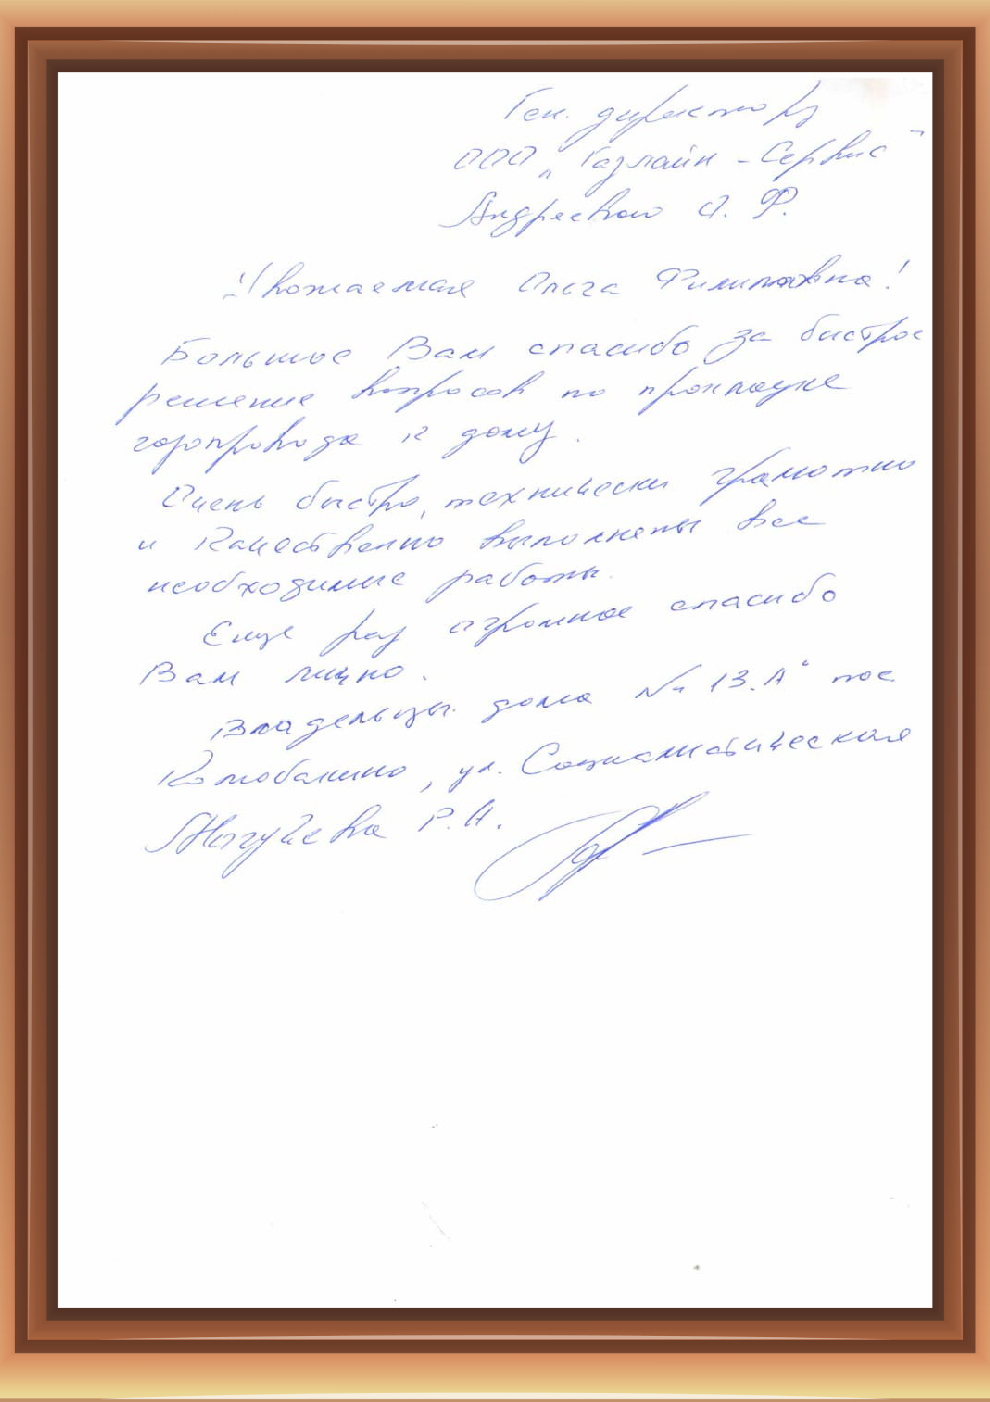 Ген. директору
ООО „Газлайн - Сервис"
Андреевой О. Ф.
Уважаемая Ольга Филипповна!
Большое Вам спасибо за быстрое
решение вопросов по прокладке
газопровода к дому.
Очень быстро, технически грамотно
и качественно выполнены все
необходимые работы.
Еще раз огромное спасибо
Вам лично.
Владельцы дома № 13 „А" пос.
ул. Социалистическая
Р.И.